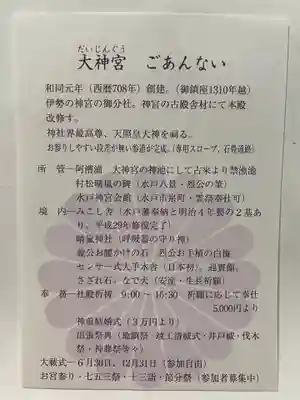 だいじんぐう
大神宮 ごあんない
和同元年(西暦708年)創建。(御鎮座1310年越)
伊勢の神宮の御分社。神宮の古殿舎材にて本殿
改修す。
神社界最高尊、天照皇大神を祀る。
お参りしやすい段差が無い参道が完成。(専用スロープ、石畳通路)
所 管―阿漕浦 大神宮の神池にして古来より禁漁池
村松晴嵐の碑(水戸八景・烈公の筆)
水戸神宮会館(水戸市元町・霊祭奉仕可)
境 内―みこし舎(水戸藩奉納と明治4年製の2基あ
り、平成29年修復完了)
晴嵐神社(呼吸器の守り神)
義公お腰かけの石 烈公お手植の白梅
センサー式大手水舎(日本初)、迎賓館、
さざれ石、なで犬(安産・生長祈願)
奉 務―社殿祈祷 9:00~16:30 祈願に応じて奉仕
5,000円より
神前結婚式(3万円より)
出張祭典(地鎮祭・竣工清祓式・井戸祓・伐木
祭・神葬祭等々)
大祓式―6月30日、12月31日(参加自由)
お宮参り・七五三祭・十三詣・節分祭(参加者募集中)